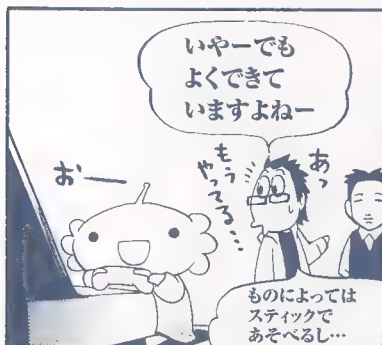 いやーでも
よくできて
いますよねー
あっ
もう
やってる…
おー
ものによっては
スティックで
あそべるし…